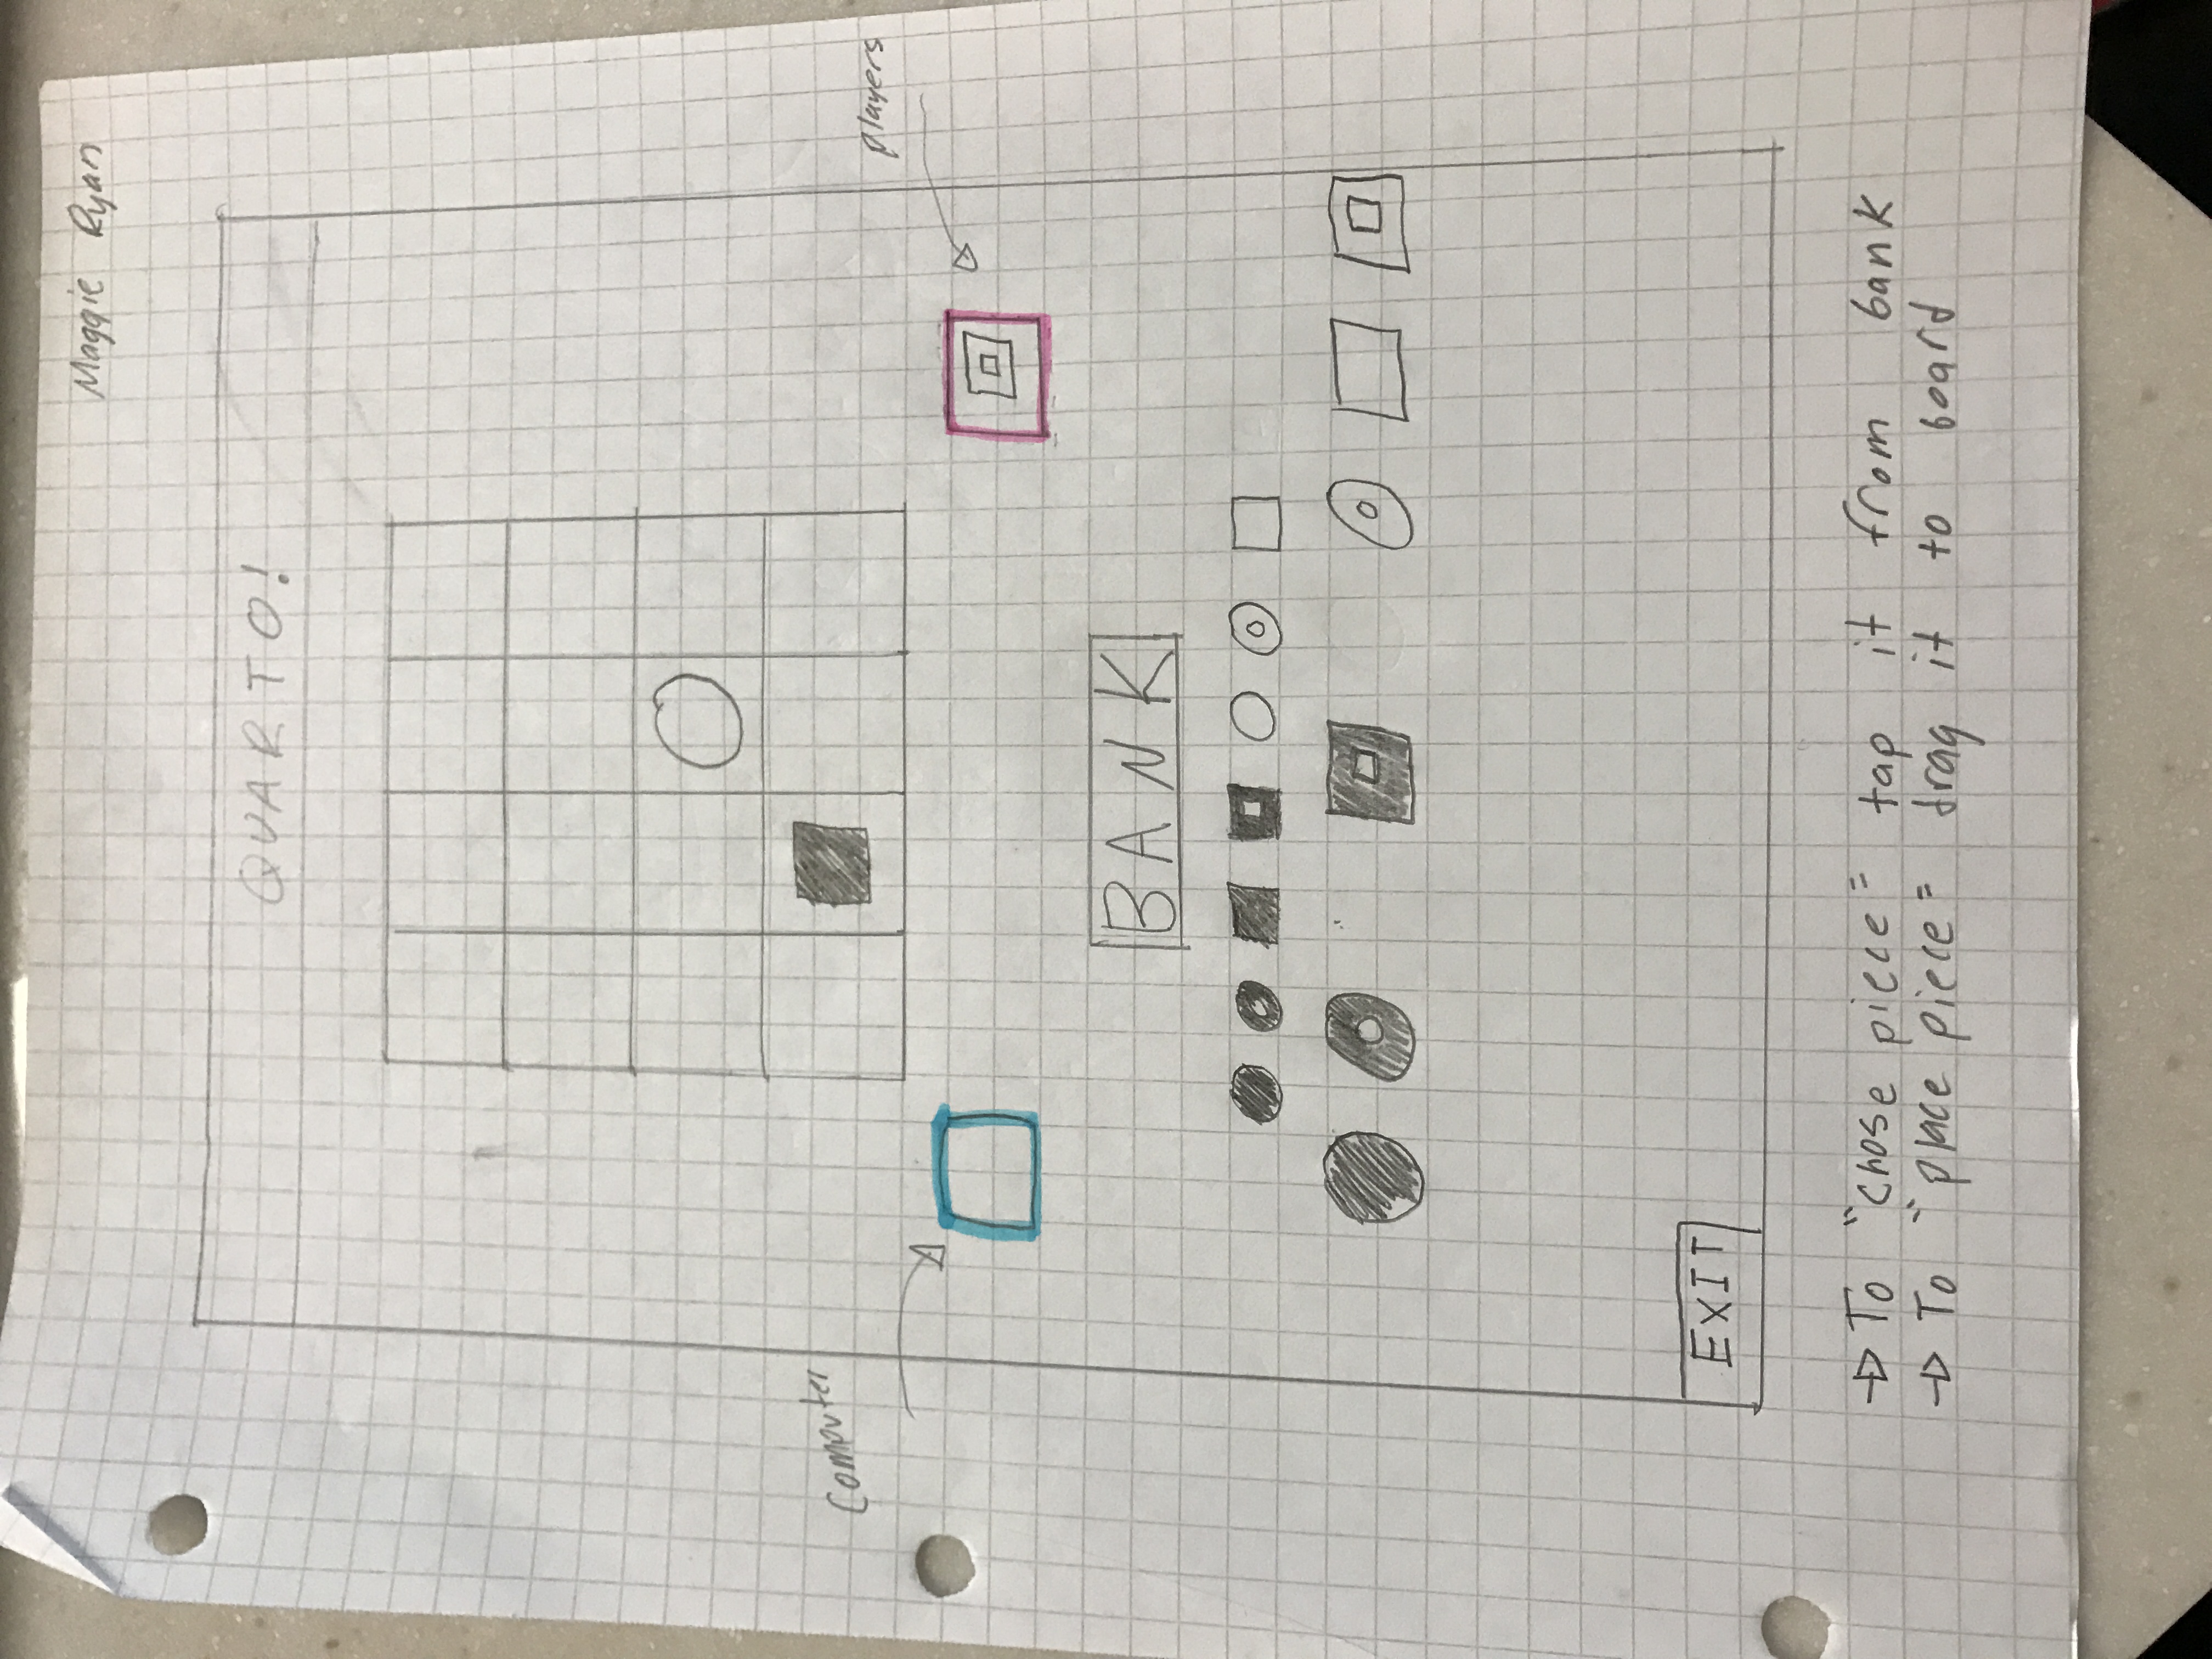 Maggie Ryan
QUARTO!
Computer
players
BANK
EXIT
→ To "chose piece" tap it from bank
→ To "place piece" drag it to board